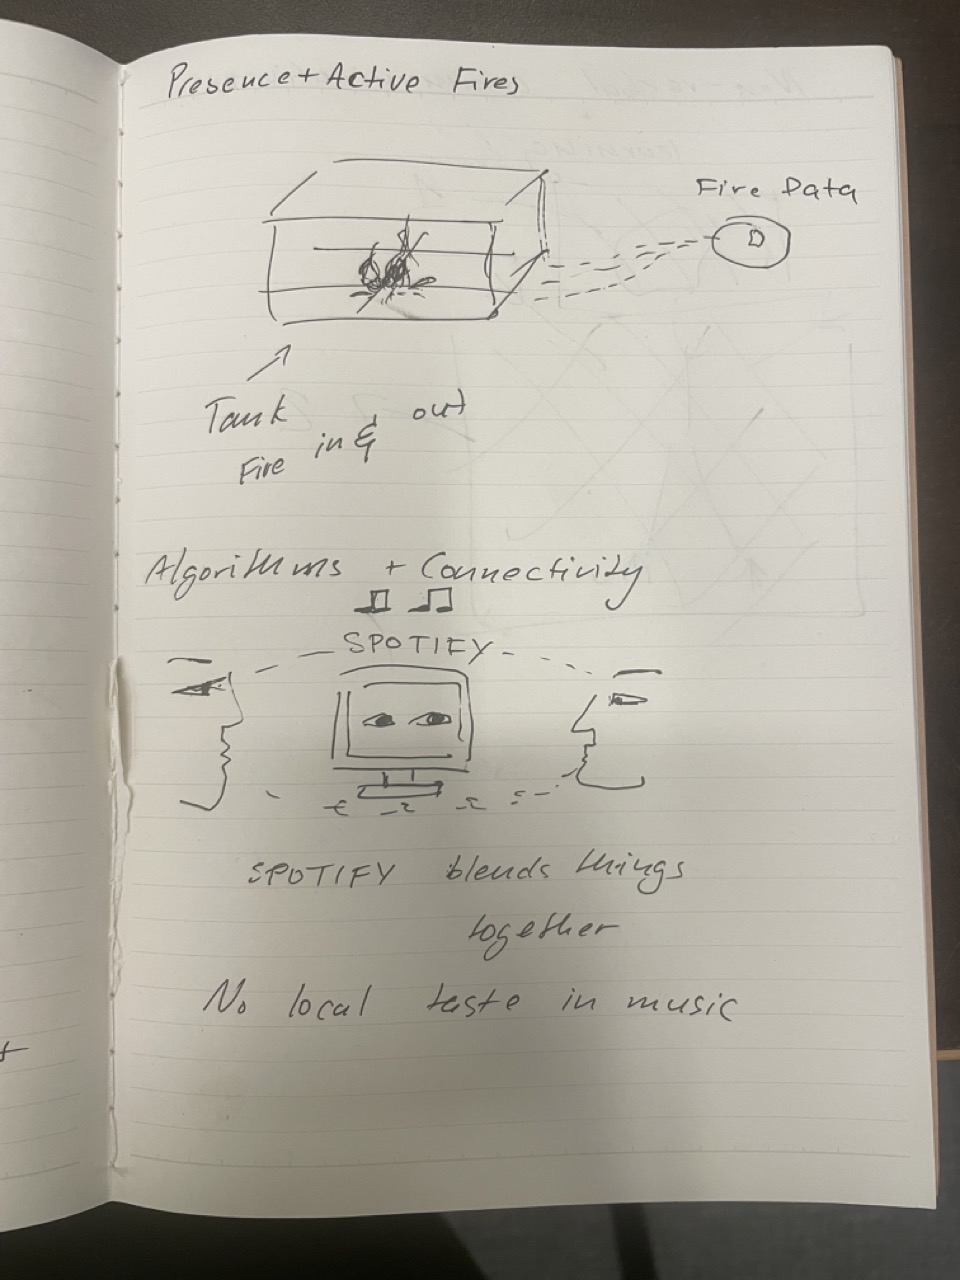 Presence + Active Fires
Fire Data
D
Tank
Fire in & out
Algorithms + Connectivity
SPOTIFY
SPOTIFY blends things
together
No local taste in music